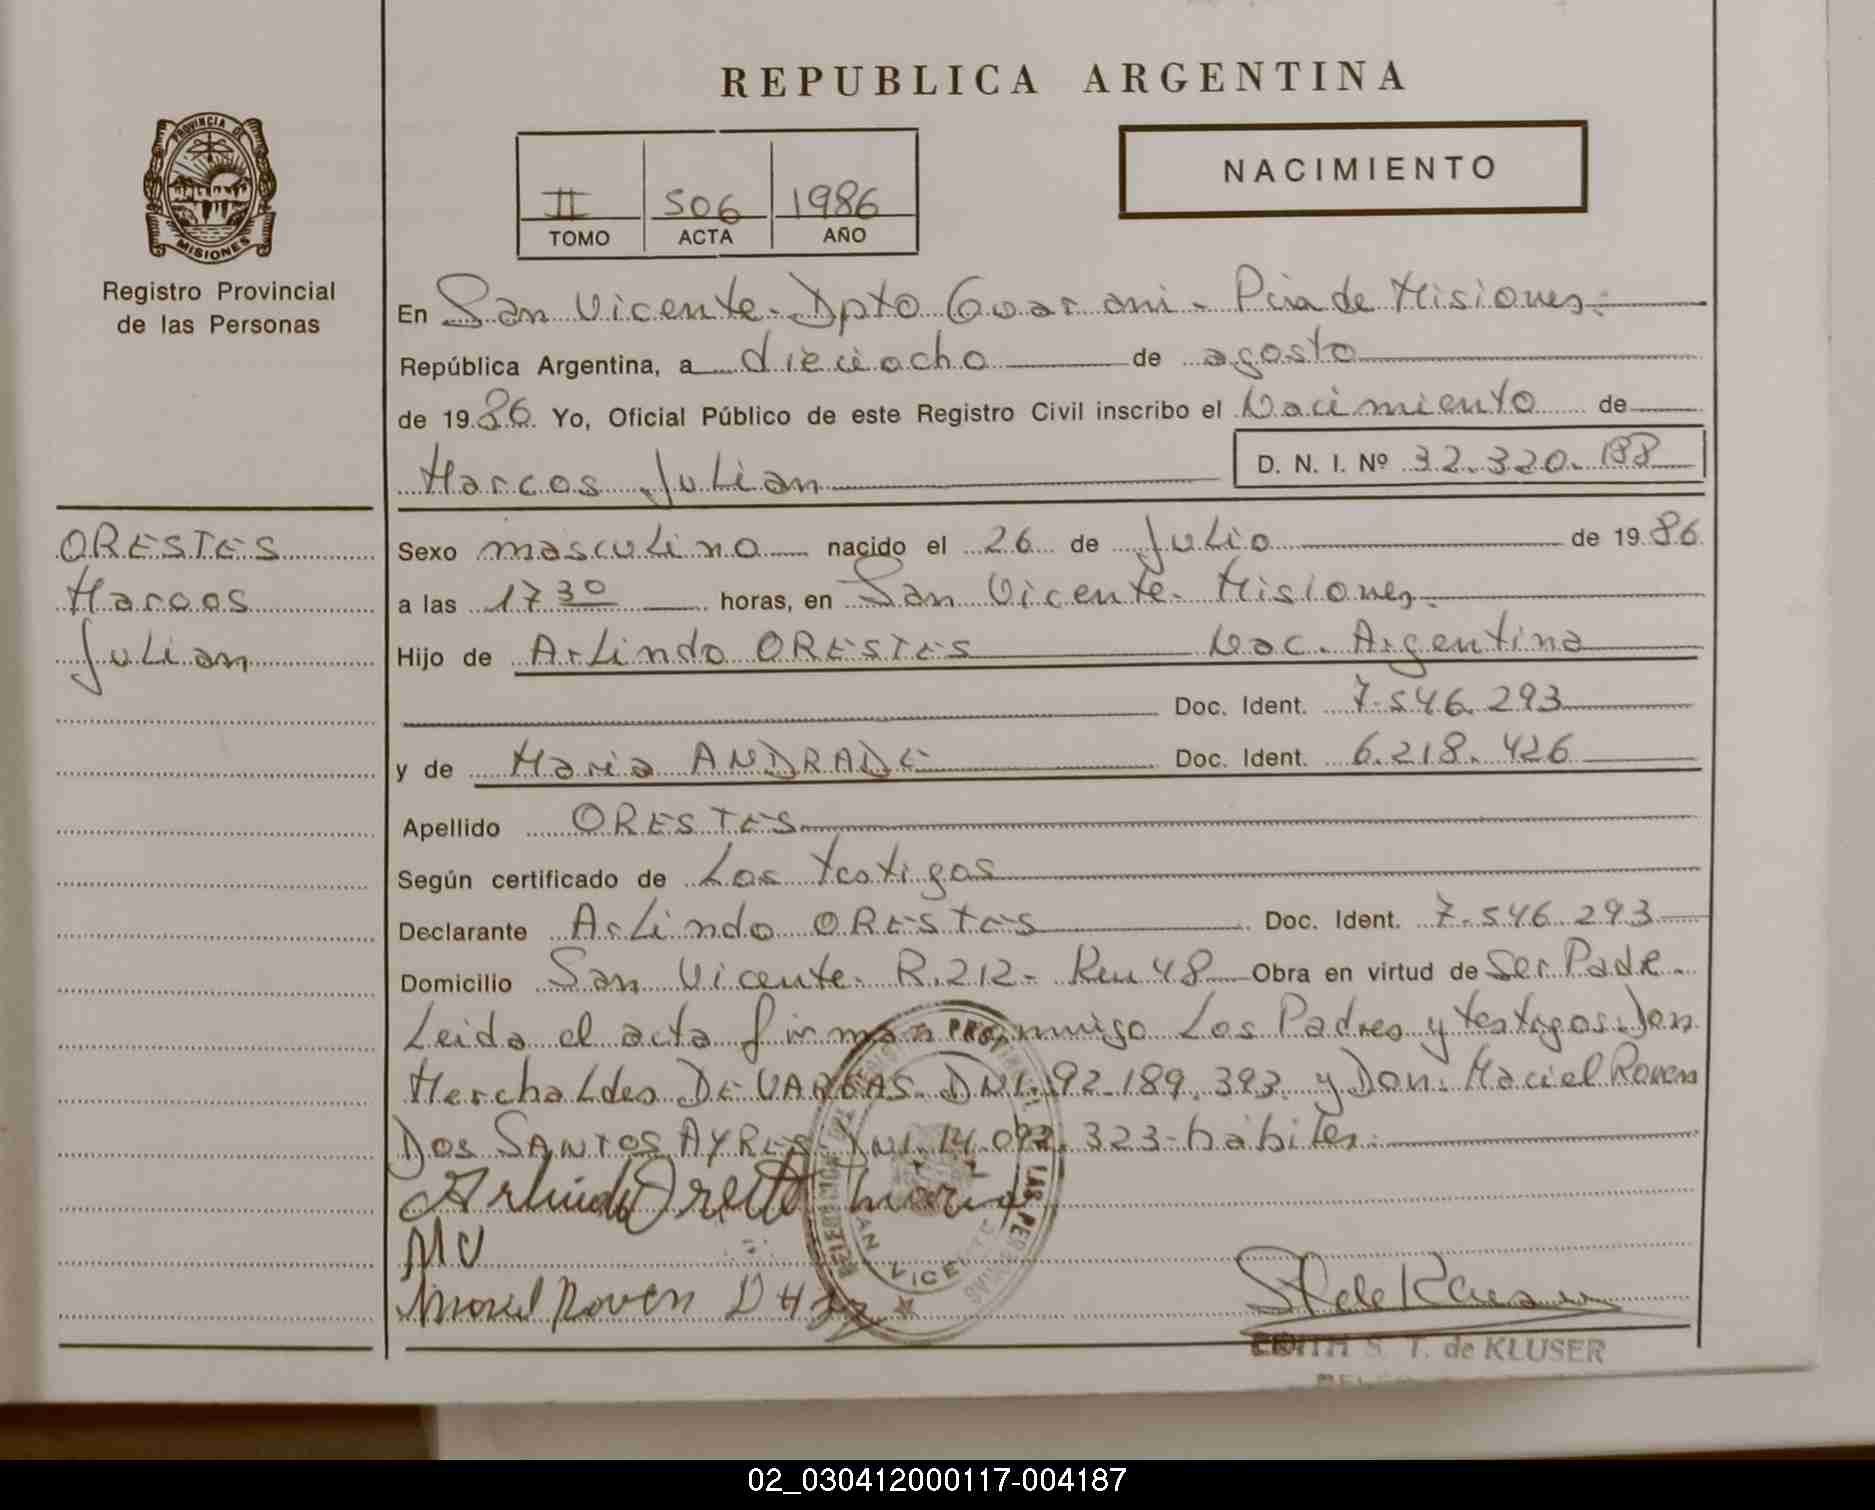 REPUBLICA ARGENTINA
PROVINCIA DE
MISIONES
Registro Provincial
de las Personas
II 506 1986
TOMO ACTA AÑO
NACIMIENTO
En San Vicente - Dpto Guarani - Pcia de Misiones.
República Argentina, a dieciocho de agosto
de 1986. Yo, Oficial Público de este Registro Civil inscribo el Nacimiento de
Marcos Julian D. N. I. Nº 32.320.188
ORESTES
Marcos
Julian
Sexo masculino nacido el 26 de Julio de 1986
a las 17 30 horas, en San Vicente - Misiones.
Hijo de Arlindo ORESTES Nac. Argentina
Doc. Ident. 7.546.293
y de Maria ANDRADE Doc. Ident. 6.218.426
Apellido ORESTES
Según certificado de Los testigos
Declarante Arlindo ORESTES Doc. Ident. 7.546.293
Domicilio San Vicente - R.212 - Km 48 Obra en virtud de Ser Padre.
Leida el acta firman conmigo Los Padres y testigos: Don
Merchaldes DE VARGAS DNI. 92.189.393 y Don. Maciel Roven
DOS SANTOS AYRES DNI. 14.092.323 - hábiles.
Arlindo Oreste maria
MV
Maciel Roven D
SAN VICENTE
LAS PERSONAS
EDITH S. T. de KLUSER
02_030412000117-004187